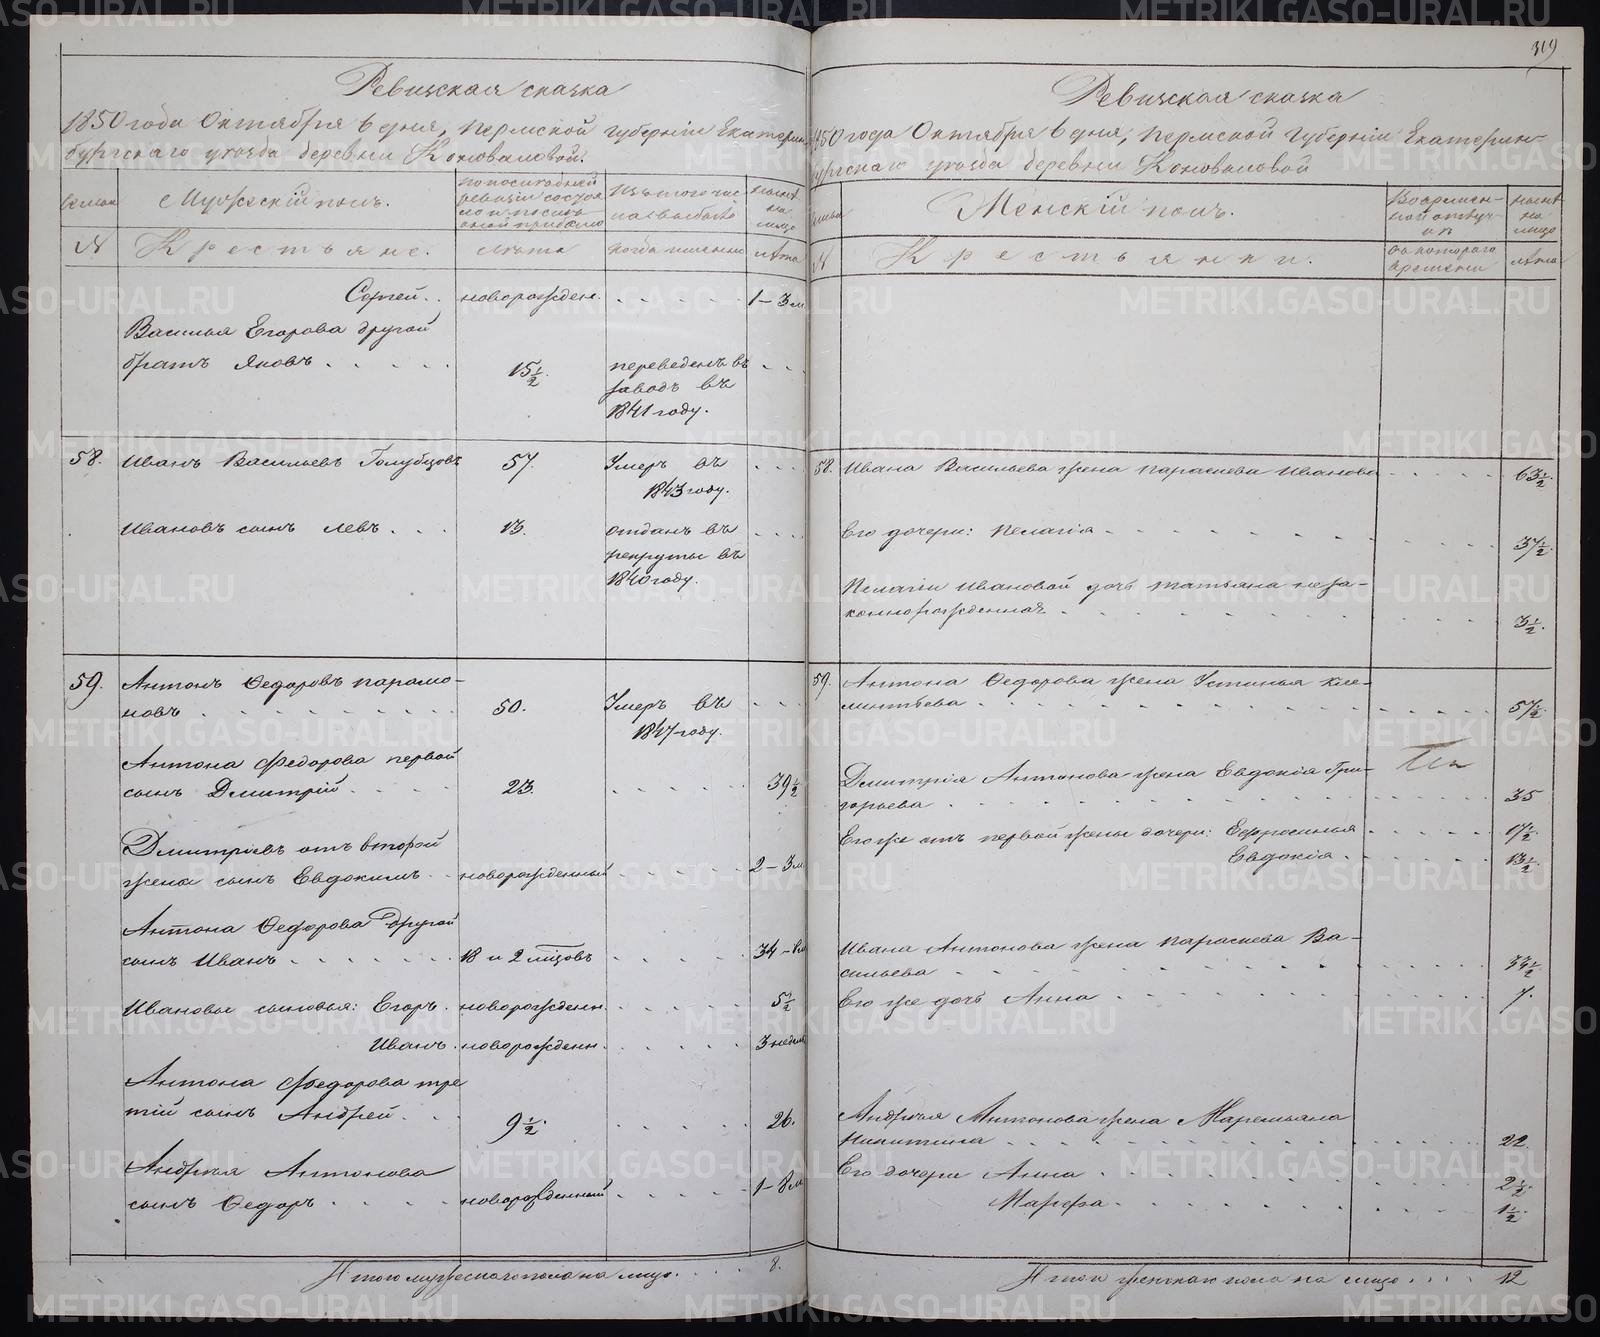 319
Ревизская сказка
1850 года Октября 6 дня, Пермской губернии Екатерин-
бургскаго уезда деревни Коноваловой.
Семьи
Мужеский полъ.
По последней ревизии состояло и после оной прибыло
Изъ того числа выбыло
Ныне на лицо
№
Крестьяне.
Лета
Когда именно
Лета
Сергей . . новорожден. . . . . . 1 – 3 м
Василья Егорова другой
братъ Яковъ . . . . . 15 1/2 переведенъ въ . . .
заводъ въ
1841 году.
58. Иванъ Васильевъ Голубцовъ 57. Умеръ въ . . .
1843 году.
Ивановъ сынъ Левъ . . . 13. отданъ въ . . .
рекруты въ
1840 году.
59. Антонъ Ѳедоровъ Парамо-
новъ . . . . . . . . . 50. Умеръ въ . . .
1847 году.
Антона Федорова первой
сынъ Дмитрій . . . . 23. . . . . . . 39 1/2
Дмитріевъ отъ второй
жены сынъ Евдокимъ . . новорожденный . . . . . 2 – 3 м
Антона Ѳедорова другой
сынъ Иванъ . . . . . . 18 и 2 м̃цовъ . . . . . 34 – 8 м
Ивановы сыновья: Егоръ . новорожденн. . . . . . 5 1/2
Иванъ . новорожденн. . . . . . 3 недел
Антона Федорова тре
тій сынъ Андрей . . . 9 1/2. . . . . . 26.
Андрея Антонова
сынъ Ѳедоръ . . . . . новорожденный . . . . . 1 – 8 м
Итого мужескаго пола на лицо . . . . 8.
Ревизская сказка
1850 года Октября 6 дня, Пермской губернии Екатерин-
бургскаго уезда деревни Коноваловой
Семьи
Женскій полъ.
Во временной отлучке
Ныне на лицо
№
Крестьянки.
Съ котораго времени
Лета
58. Ивана Васильева жена Парасковья Иванова . . . . 63 1/2.
Его дочери: Пелагія . . . . . . . . 37 1/2.
Пелагіи Ивановой дочь Татьяна неза-
коннорожденная . . . . . . . . 3 1/2.
59. Антона Ѳедорова жена Устинья Кле-
ментьева . . . . . . . . . 57 1/2.
Дмитрія Антонова жена Евдокія Гри-
горьева . . . . . . . . . 35
Его же отъ первой жены дочери: Ефросинья . . . . . 17 1/2.
Евдокія . . . . . . 13 1/2.
Ивана Антонова жена Парасковья Ва-
сильева . . . . . . . . . 34 1/2.
Его же дочь Анна . . . . . . . . 7.
Андрея Антонова жена Маремьяна
Никитина . . . . . . . . . 22.
Его дочери Анна . . . . . . . . 2 1/2.
Марфа . . . . . . . . 1 1/2.
Итого женскаго пола на лицо . . . . 12
METRIKI.GASO-URAL.RU